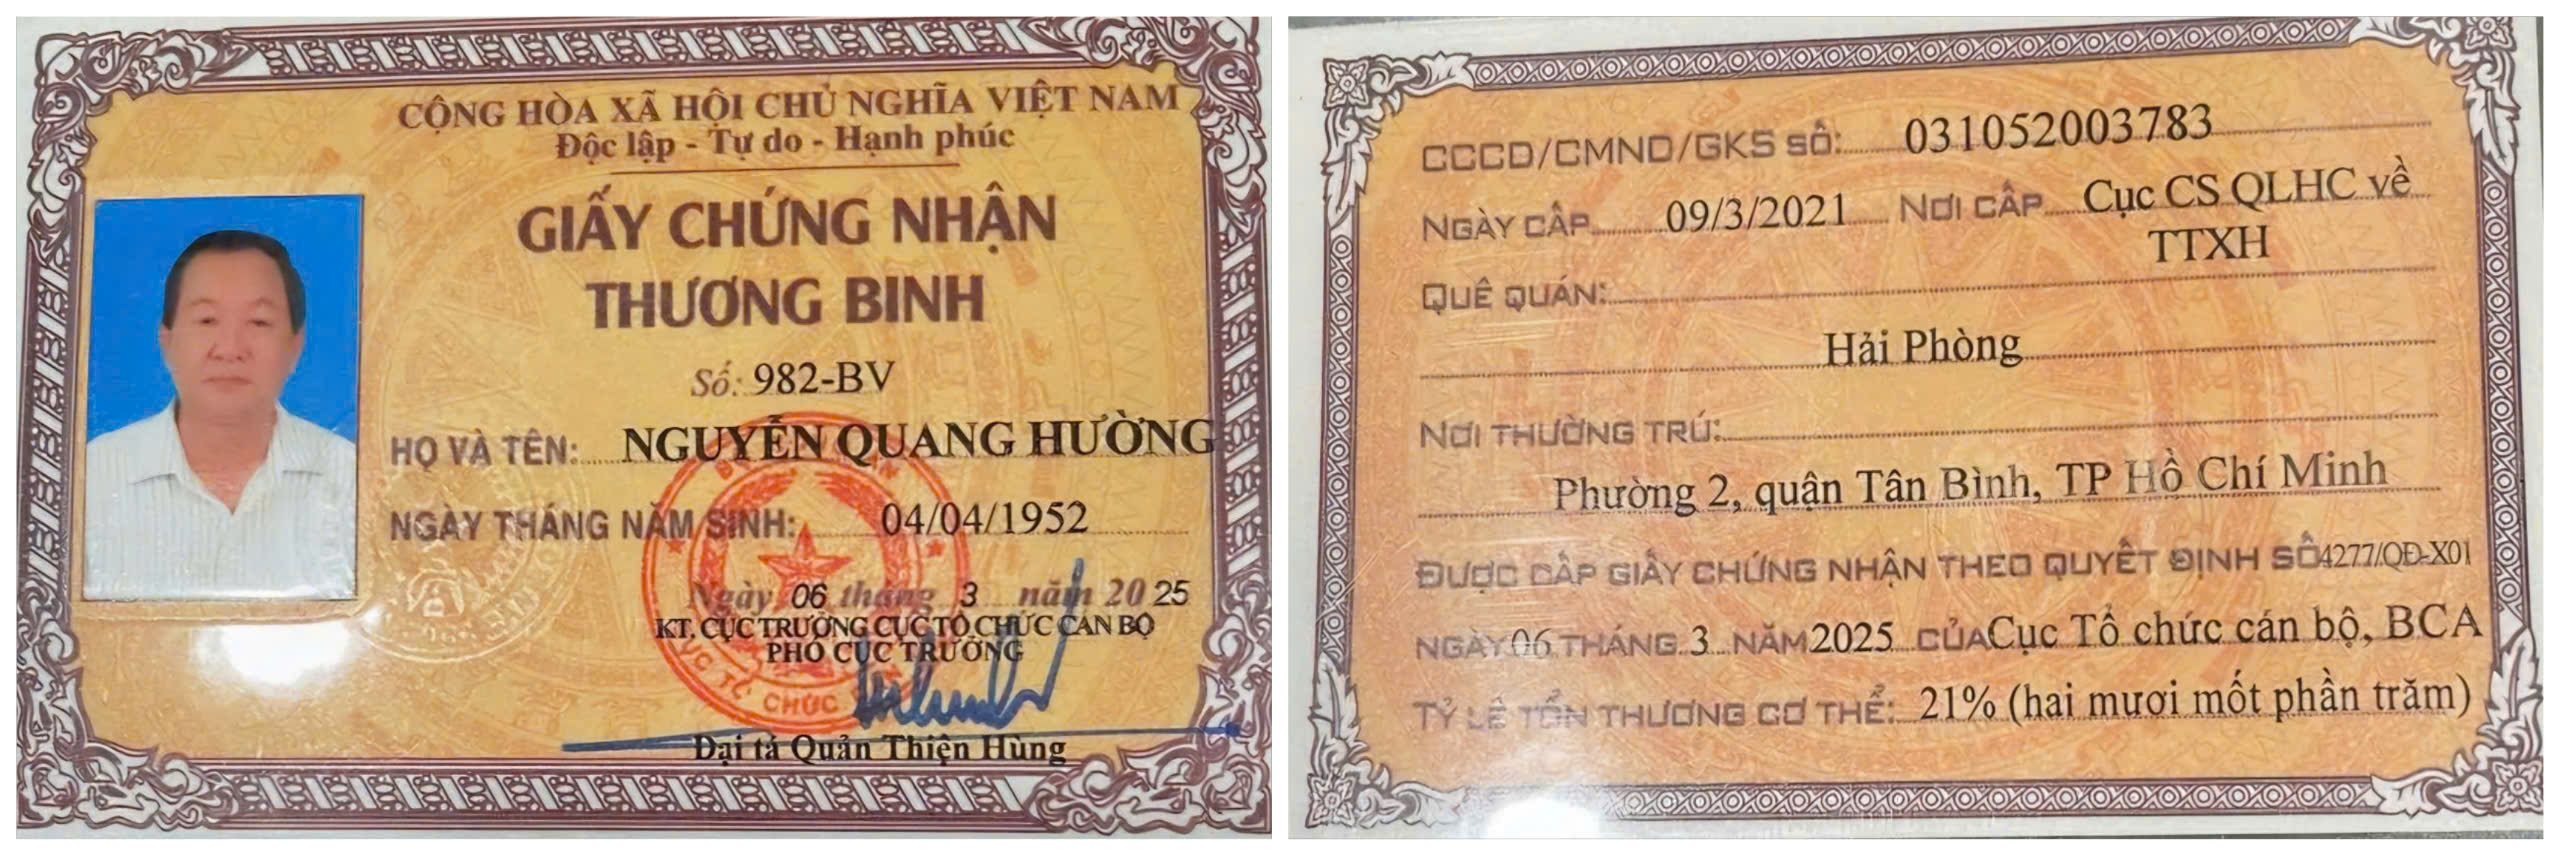 CỘNG HÒA XÃ HỘI CHỦ NGHĨA VIỆT NAM
Độc lập - Tự do - Hạnh phúc
GIẤY CHỨNG NHẬN
THƯƠNG BINH
Số: 982-BV
HỌ VÀ TÊN: NGUYỄN QUANG HƯỜNG
NGÀY THÁNG NĂM SINH: 04/04/1952
Ngày 06 tháng 3 năm 2025
KT. CỤC TRƯỞNG CỤC TỔ CHỨC CÁN BỘ
PHÓ CỤC TRƯỞNG
CỤC TỔ CHỨC
Đại tá Quản Thiện Hùng
CCCD/CMND/GKS SỐ: 031052003783
NGÀY CẤP 09/3/2021 NƠI CẤP Cục CS QLHC về
TTXH
QUÊ QUÁN:
Hải Phòng
NƠI THƯỜNG TRÚ:
Phường 2, quận Tân Bình, TP Hồ Chí Minh
ĐƯỢC CẤP GIẤY CHỨNG NHẬN THEO QUYẾT ĐỊNH SỐ 4277/QĐ-X01
NGÀY 06 THÁNG 3 NĂM 2025 CỦA Cục Tổ chức cán bộ, BCA
TỶ LỆ TỔN THƯƠNG CƠ THỂ: 21% (hai mươi mốt phần trăm)